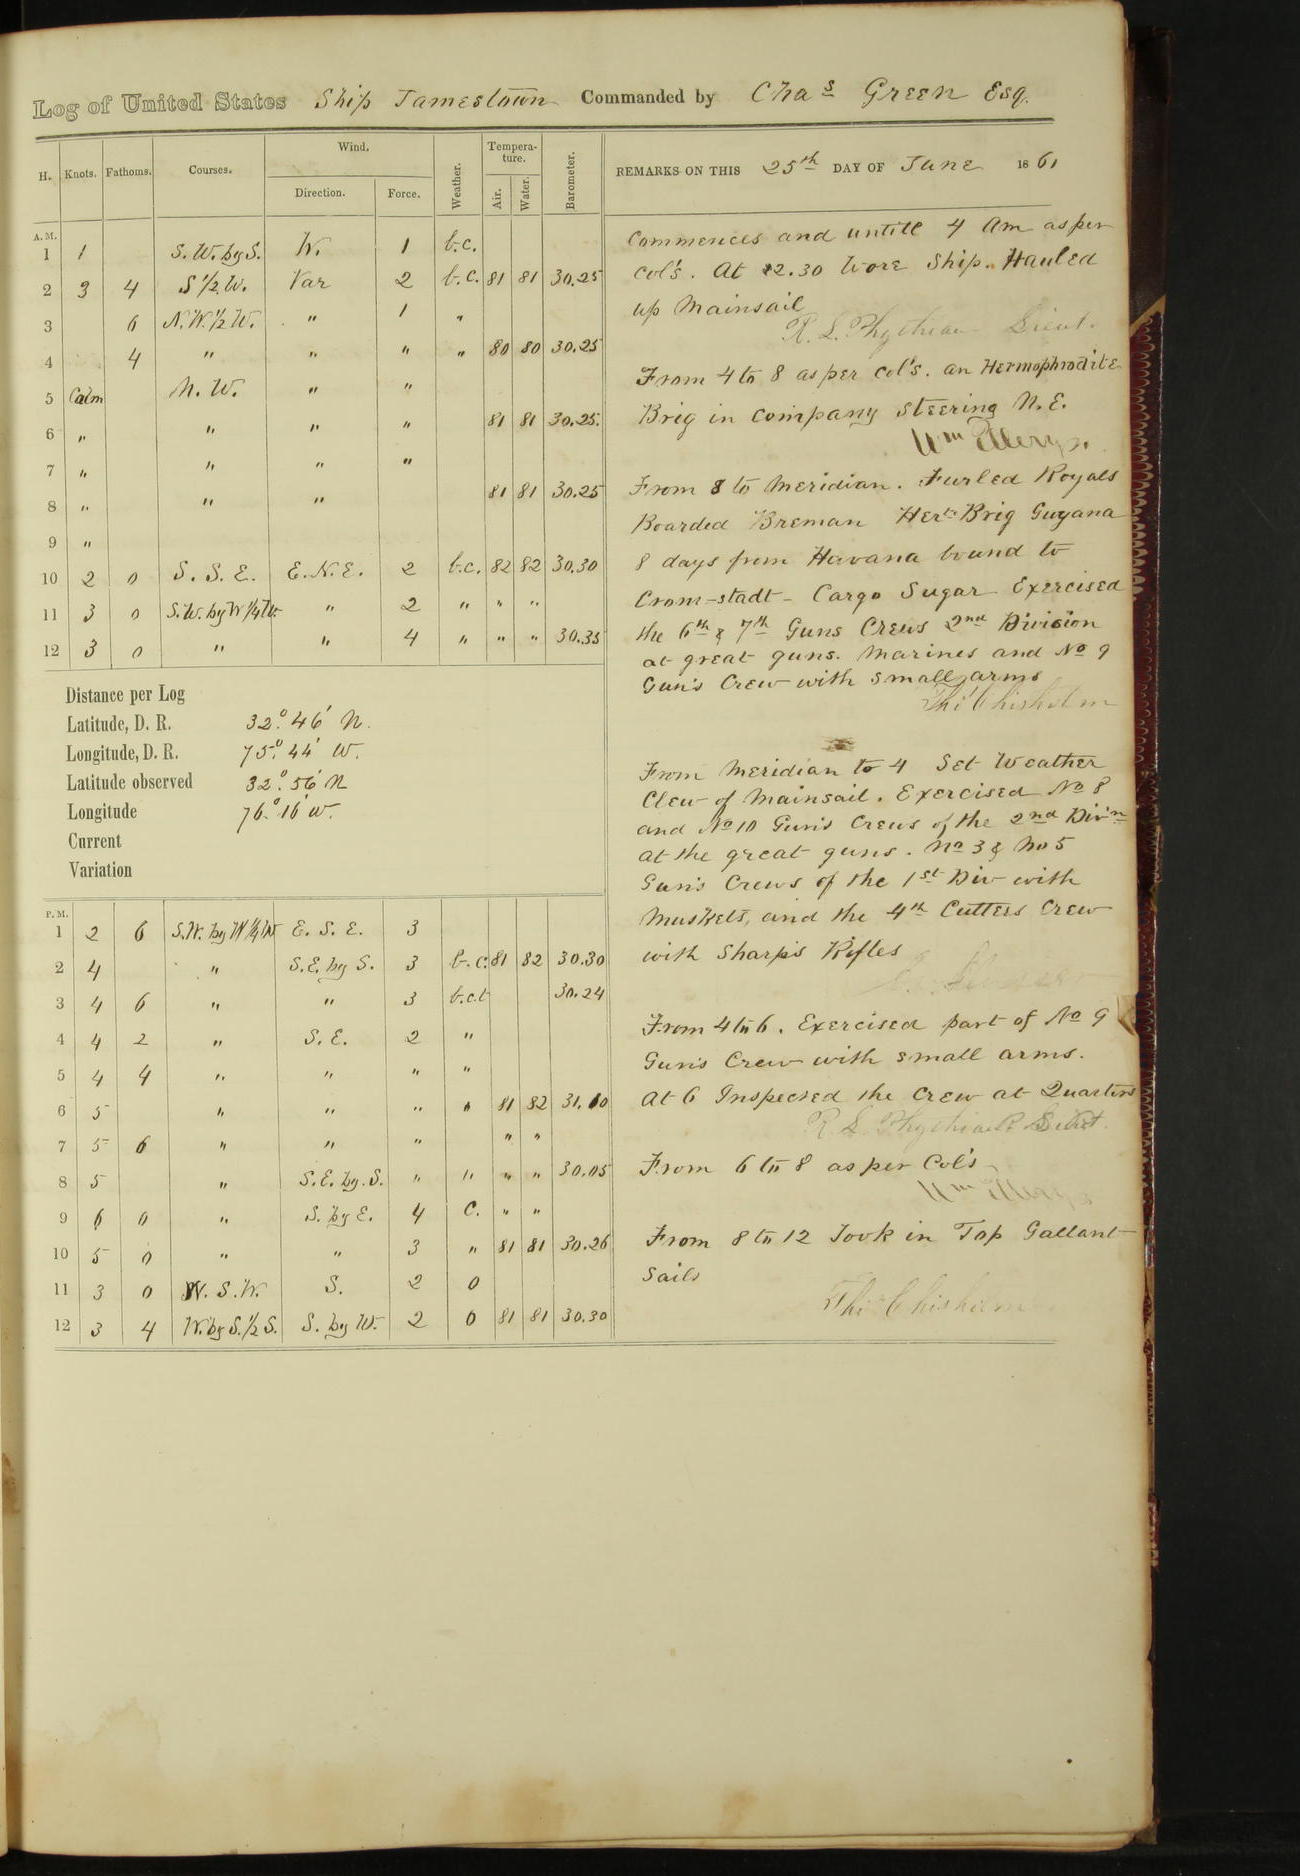 Log of United States Ship Jamestown Commanded by Chas Green Esq.
H. Knots. Fathoms. Courses. Wind. Direction. Force. Weather. Tempera-ture. Air. Water. Barometer.
REMARKS ON THIS 25th DAY OF June 1861
A.M.
1 1 S.W. by S. W. 1 b.c.
2 3 4 S 1/2 W. Var 2 b.c. 81 81 30.25
3 6 N.W. 1/2 W. " 1 "
4 4 " " " " 80 80 30.25
5 Calm N.W. " "
6 " " " " 81 81 30.25
7 " " " "
8 " " " 81 81 30.25
9 "
10 2 0 S.S.E. E.N.E. 2 b.c. 82 82 30.30
11 3 0 S.W. by W 1/4 W. " 2 " " "
12 3 0 " " 4 " " " 30.35
Commences and untill 4 Am as per
Col's. At 12.30 Wore Ship. Hauled
up Mainsail
R. L. Phythian Lieut.
From 4 to 8 as per Col's. an Hermophrodite
Brig in company steering N.E.
Wm Ellery
From 8 to Meridian. Furled Royals
Boarded Breman Herm Brig Guyana
8 days from Havana bound to
Crom-stadt - Cargo Sugar Exercised
the 6th & 7th Guns Crews 2nd Division
at great guns. Marines and No 9
Gun's Crew with small arms
Chisholm
Distance per Log
Latitude, D. R. 32° 46' N.
Longitude, D. R. 75° 44' W.
Latitude observed 32° 56' N
Longitude 76° 16' W.
Current
Variation
From Meridian to 4 Set Weather
Clew of Mainsail. Exercised No 8
and No 10 Gun's Crews of the 2nd Divn
at the great guns. No 3 & No 5
Gun's Crews of the 1st Div with
Muskets, and the 4th Cutters Crew
with Sharp's Rifles
P.M.
1 2 6 S.W. by W 1/4 W E.S.E. 3
2 4 " S.E. by S. 3 b.c. 81 82 30.30
3 4 6 " " 3 b.c.t 30.24
4 4 2 " S.E. 2 "
5 4 4 " " " "
6 5 " " " " 81 82 31.10
7 5 6 " " " " "
8 5 " S.E. by S. " " " " 30.05
9 6 0 " S. by E. 4 C. " "
10 5 0 " " 3 " 81 81 30.26
11 3 0 W.S.W. S. 2 0
12 3 4 W. by S. 1/2 S. S. by W. 2 0 81 81 30.30
From 4 to 6. Exercised part of No 9
Gun's Crew with small arms.
At 6 Inspected the Crew at Quarters
R. L. Phythian Lieut.
From 6 to 8 as per Col's
Wm Ellery
From 8 to 12 Took in Top Gallant
Sails
Chisholm